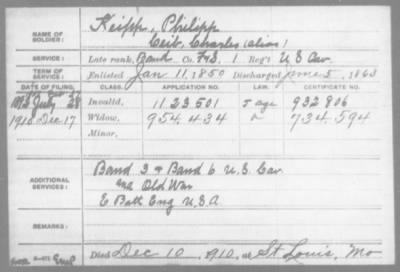 NAME OF SOLDIER:
Keipp, Philipp
Ceib, Charles (alias)
SERVICE:
Late rank, Band Co. F&S, 1 Reg't U S Cav.
TERM OF SERVICE:
Enlisted Jan. 11, 1850 Discharged June 5, 1863
DATE OF FILING. CLASS. APPLICATION NO. LAW. CERTIFICATE NO.
July 28 Invalid, 1123501 J age 932806
1910 Dec 17 Widow, 954434 734594
Minor,
ADDITIONAL SERVICES:
Band 3 & Band 6 U.S. Cav
Old War
E Batt Eng U.S.A
REMARKS:
Died Dec 10, 1910, at St Louis, Mo